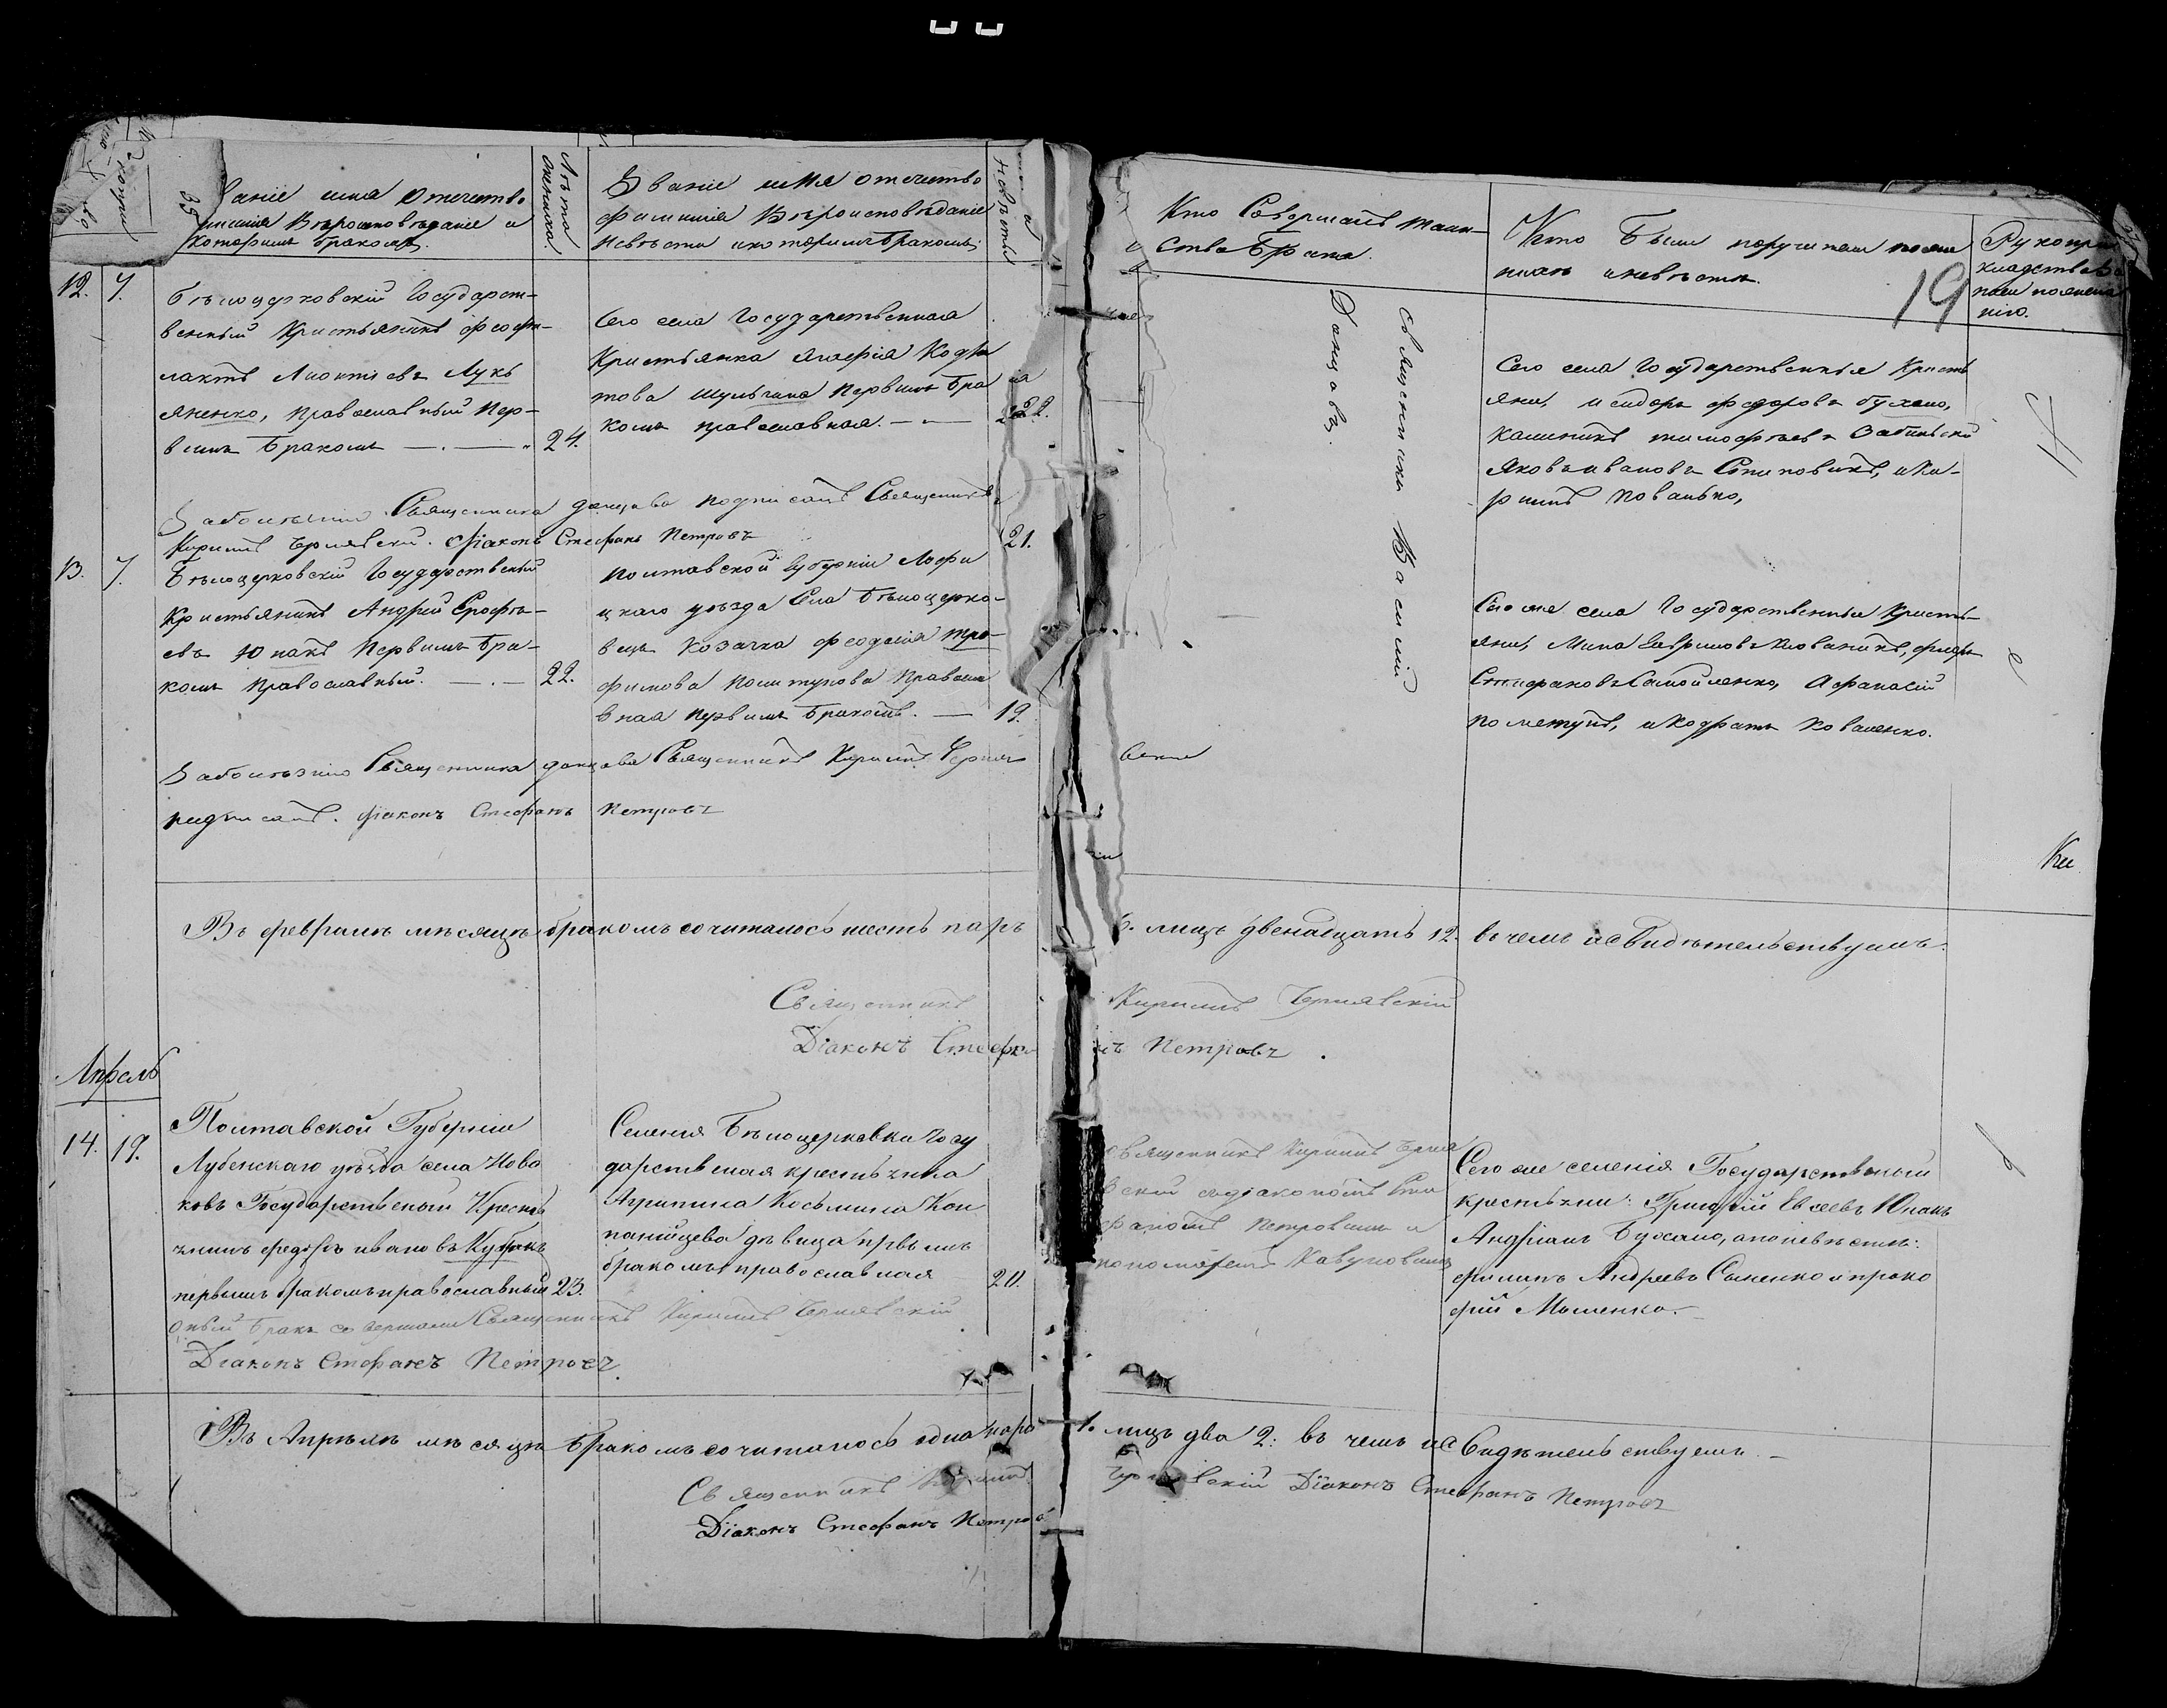 Званіе имя отечество
фамилія Вѣроисповѣданіе и
которымъ бракомъ.
Лѣта
жениха.
Званіе имя отечество
фамилія Вѣроисповѣданіе
невѣсты и которымъ бракомъ.
невѣсты
Кто Совершалъ таин-
ство Брака.
Кто были поручители по же
нихѣ и невѣстѣ.
Рукопри
кладство
19
12. 7.
Бѣлоцерковскій Государст-
венный Крестьянинъ Феофи-
лактъ Леонтіевъ Лукь
яненко, православный пер-
вымъ бракомъ — . — 24.
Сего села Государственная
Крестьянка Агафія Кодра
това Шульгина первымъ бра
комъ православная. — — 22.
Священникъ Василій
Данцовъ.
Сего села Государственныя Кресть
яни, Исидоръ Федоровъ Бухало,
Калиникъ Тимофѣевъ
Яковъ Ивановъ и Ки-
рилъ Ковалько,
За болѣзнію Священника Данцова подписалъ Священникъ
Кирилъ Чернявскій. Діаконъ Стефанъ Петровъ
21.
13. 7.
Бѣлоцерковскій Государственый
Крестьянинъ Андрей Ерофѣ-
евъ Юпакъ первымъ бра-
комъ православный. — . — 22.
Полтавской Губерніи Лохви
цкаго уѣзда Села Бѣлоцерко-
вецъ Козачка Феодосія Тро-
фимова Политухова Правосла
вная первымъ бракомъ. — 19.
Сего же села Государственныи Кресть-
яни, Мина Гавриловъ
Стефановъ Самойленко, Афанасій
и Кодратъ Коваленко.
За болѣзнію Священника Данцова Священникъ Кирилъ Черняв
вскій
подписалъ. Діаконъ Стефанъ Петровъ
Въ февралѣ мѣсяцѣ бракомъ сочиталось шесть паръ 6. лицъ двенатцать 12. въ чемъ и свидѣтельствуемъ.
Священникъ Кирилъ Чернявскій
Діаконъ Стефанъ Петровъ.
Апрель
14. 19.
Полтавской Губерніи
Лубенскаго уѣзда села Ново
ковъ Государственый Кресть
янинъ Федоръ Ивановъ Кубракъ
первымъ бракомъ православный 23.
Селенія Бѣлоцерковки Госу
дарственая крестьянка
Агрипина Косьмина Кон
панійцева дѣвица первымъ
бракомъ православная 20.
священникъ Кирилъ Черня
вскій съ діакономъ Сте
фаномъ Петровымъ и
пономаремъ Кавуновымъ
Сего же селенія Государственыи
крестьяни: Григорій Евсеевъ Юпакъ
Андріанъ Бухало, а по невѣсте:
Филипъ Андреевъ Сененко и Проко
фій Мошенко. —
оный бракъ совершалъ Священникъ Кирилъ Чернявскій
Діаконъ Стефанъ Петровъ.
Въ Апрѣлѣ мѣсяцѣ бракомъ сочиталось одна пара 1. лицъ два 2: въ чемъ и свидѣтельствуемъ. —
Священникъ Кирилъ Чернявскій Діаконъ Стефанъ Петровъ
Діаконъ Стефанъ Петровъ